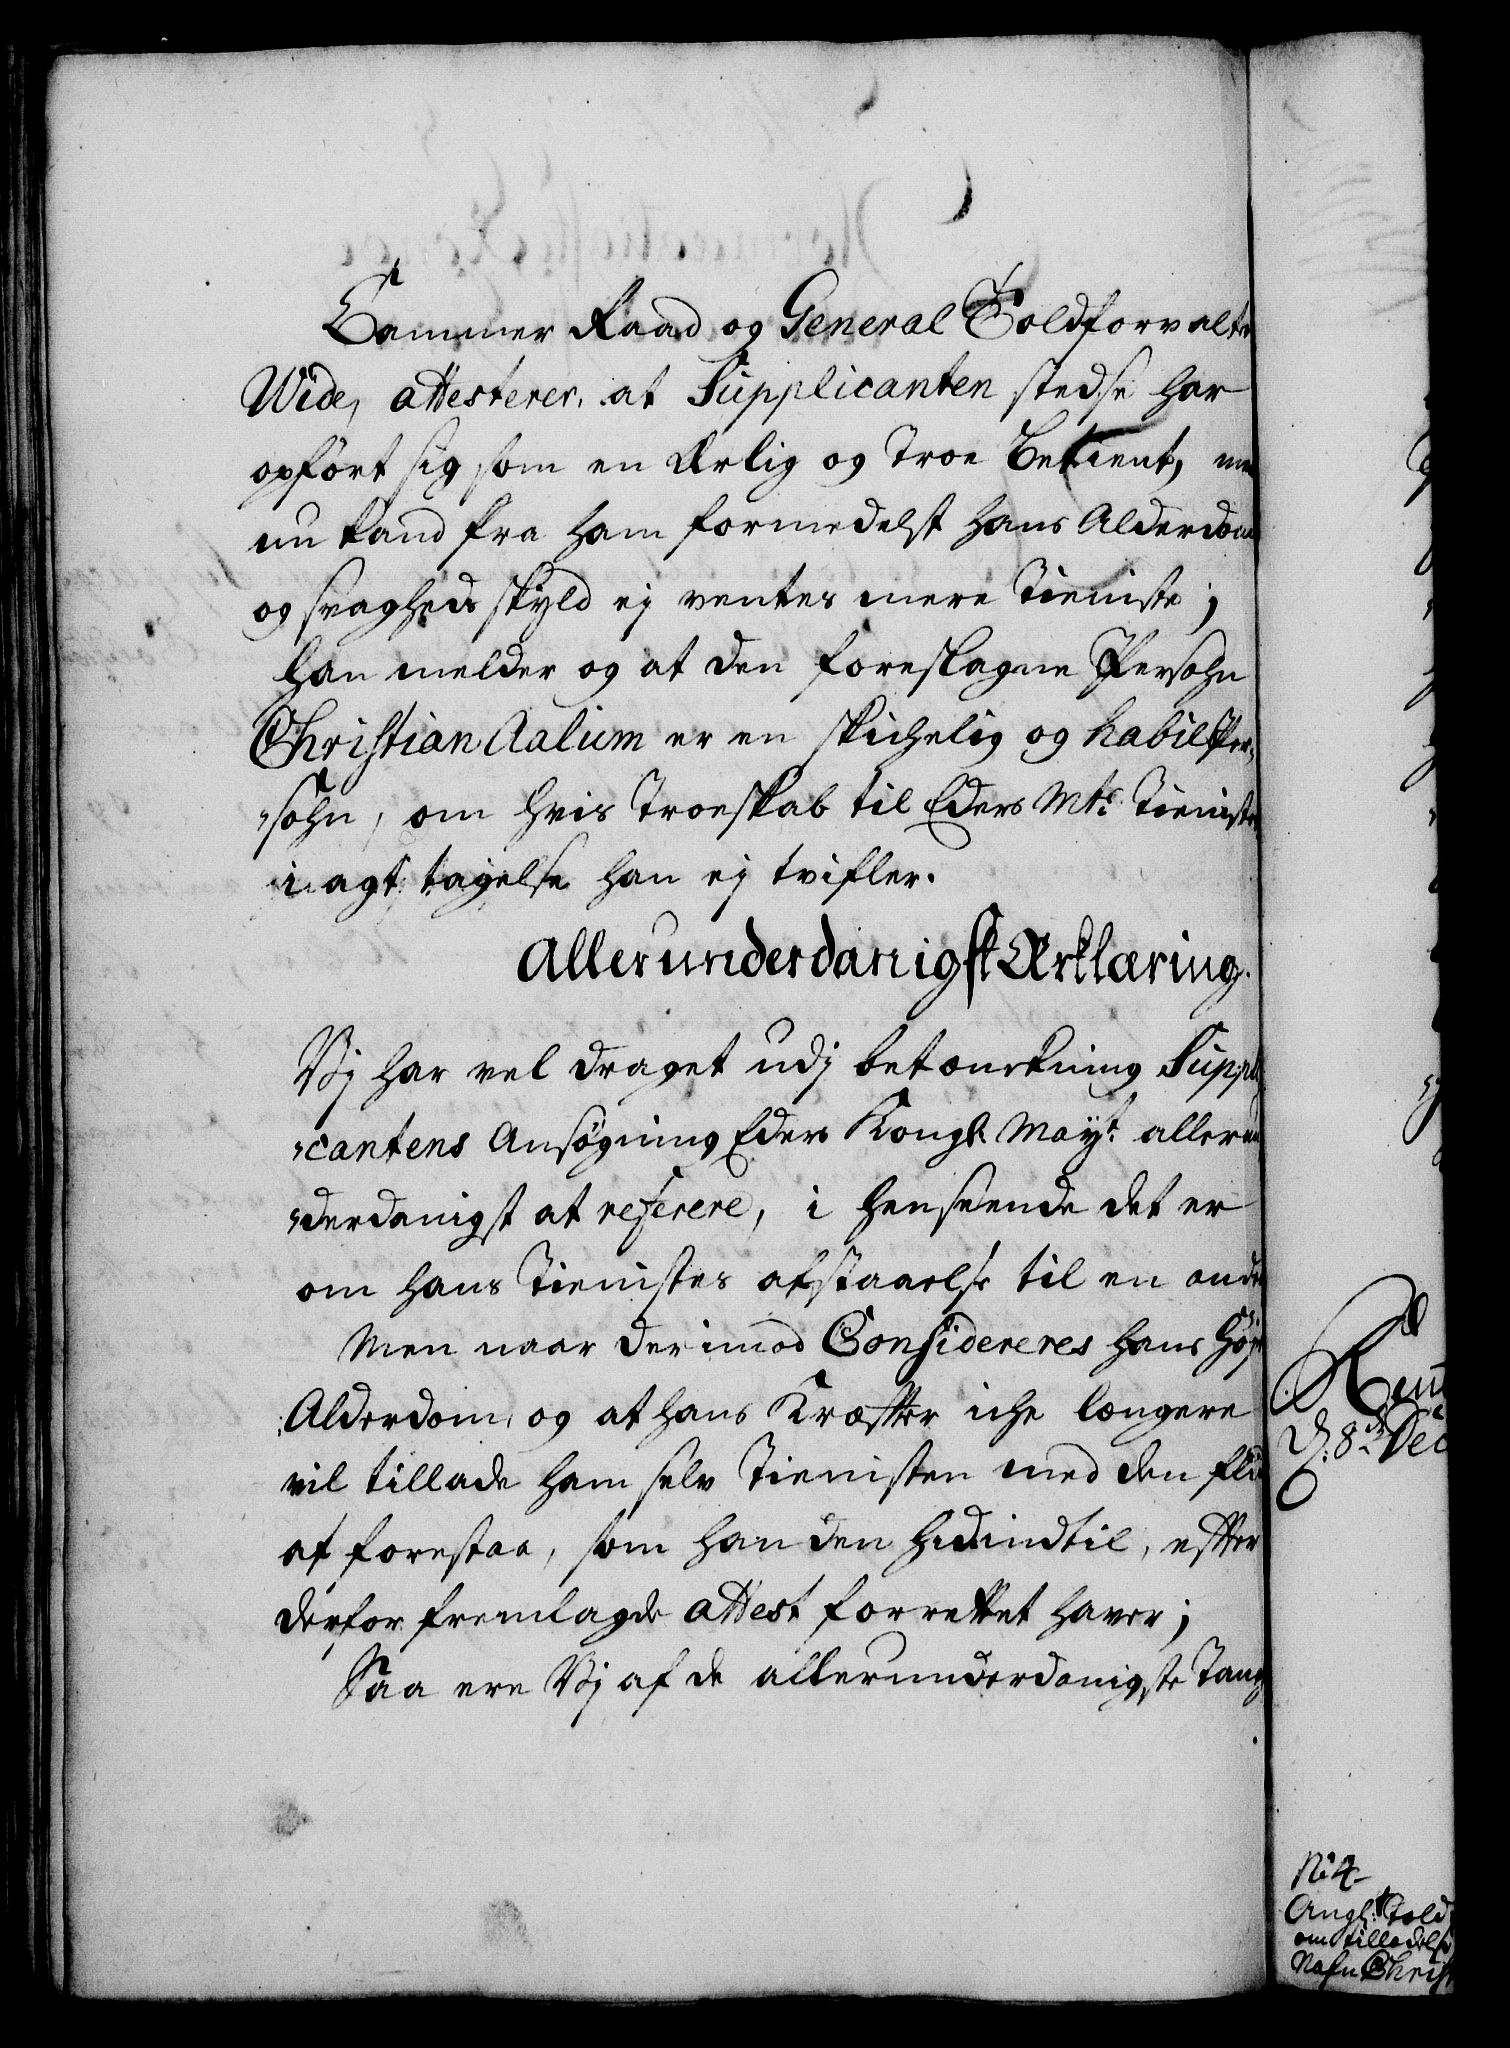 Cammer Raad og General Toldforvalte
Wide, attesterer, at Supplicanten stedse har
opført sig som en Ærlig og Troe Betient, men
nu kand fra ham formedelst hans Alderdom
og svagheds skyld ej ventes mere Tieniste;
han melder og at den foreslagne Persohn
Christian Aalum er en skichelig og habil Per„
„sohn, om hvis Troeskab til Eders Mts. Tieniste
i agt tagelse han ej tvifler.
Allerunderdanigst Erklæring.
Vj har vel draget udj betænckning Suppli
„cantens Ansøgning Eders Kongl. Mayt. allerun
„derdanigst at referere, i henseende det er
om hans Tienistes afstaaelse til en anden
Men naar derimod Considereres hans høje
Alderdom, og at hans Kræffter iche længere
vil tillade ham selv Tienisten med den flid
at forestaa, som han den hidindtil, effter
derfor fremlagde attest forrettet haver;
Saa ere Vj af de allerunderdanigste Tancker
Rent
D. 8de Dec
No 4
Angl. Told
om tilladelse
Nafn Christ